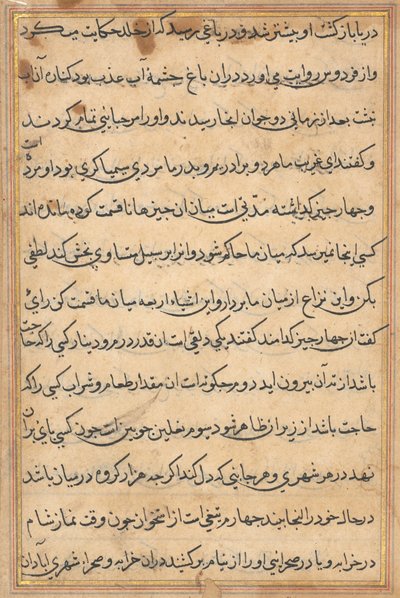 دریا بازکشت او پیشتر شد و در باغی رسید که از خلد حکایت میکرد
و از فردوس روایت می‌اورد در ان باغ چشمهٔ آب عذب بود کناره آن آب
بعد از زمانی دو جوان انجا رسیدند و او را مرحبائی تمام کردند
و کفتند ای غریب ما هر دو برادریم و پدر ما مردی سیمیاکری بود او مرده است
و چهار چیز کذاشته مدتی است میان ان چیزها نا قسمت کرده مانده اند
کسی اینجا نمیرسد که میان ما حاکم شود و انرا بر سبیل متساوی بخش کند لطفی
بکن و این نزاع از میان ما بردار و این اشیاء اربعه میان ما قسمت کن رای
کفت ان چهار چیز کدامند کفتند یکی دلقی است ان قدر زر و دینار کسی را که حاجت
باشد از ته آن بیرون اید دوم است ان مقدار طعام و شراب کسی را که
حاجت باشد از زیر ان ظاهر شود سوم نعلین چوبین است چون کسی پای بران
نهد در هر شهری و هر جایی که دل کند اکرچه هزار کروه در میان باشد
در حال خود را انجا بیند چهارم تیغی است از استخوان چون وقت نماز شام
در خرابه و یا در صحرائی او را از نیام برکشند دران خرابه و صحرا شهری آبادان